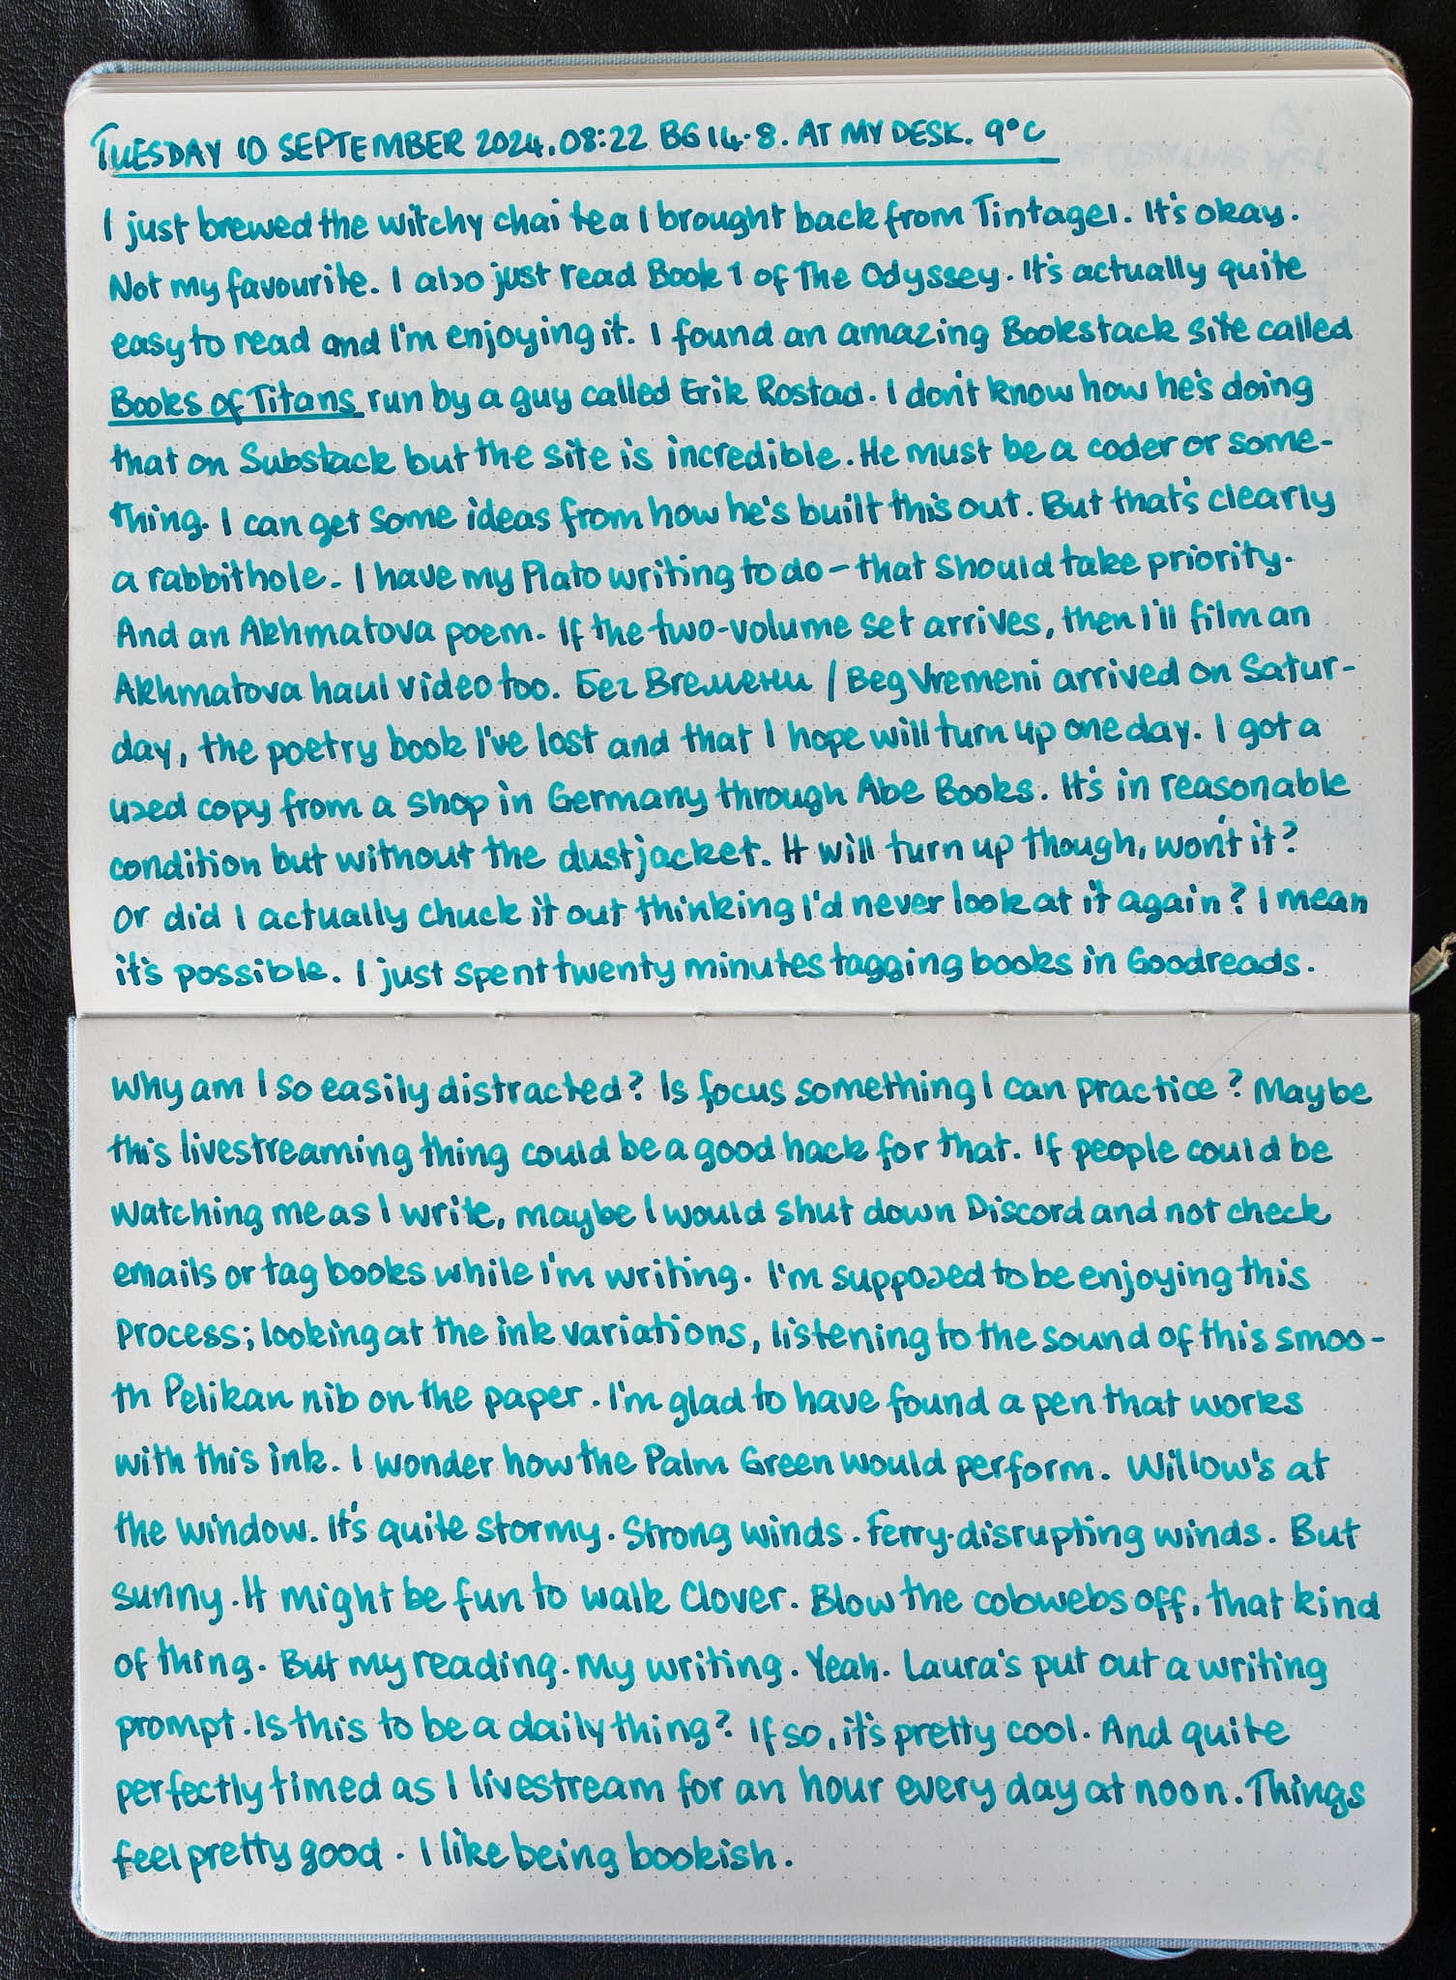 TUESDAY 10 SEPTEMBER 2024. 08:22 BG 14.8. AT MY DESK. 9°C
I just brewed the witchy chai tea I brought back from Tintagel. It's okay.
Not my favourite. I also just read Book 1 of The Odyssey. It's actually quite
easy to read and I'm enjoying it. I found an amazing Bookstack site called
Books of Titans run by a guy called Erik Rostad. I don't know how he's doing
that on Substack but the site is incredible. He must be a coder or some-
thing. I can get some ideas from how he's built this out. But that's clearly
a rabbithole. I have my Plato writing to do - that should take priority.
And an Akhmatova poem. If the two-volume set arrives, then I'll film an
Akhmatova haul video too. Бег Времени / Beg Vremeni arrived on Satur-
day, the poetry book I've lost and that I hope will turn up one day. I got a
used copy from a shop in Germany through Abe Books. It's in reasonable
condition but without the dustjacket. It will turn up though, won't it?
Or did I actually chuck it out thinking I'd never look at it again? I mean
it's possible. I just spent twenty minutes tagging books in Goodreads.
Why am I so easily distracted? Is focus something I can practice? Maybe
this livestreaming thing could be a good hack for that. If people could be
watching me as I write, maybe I would shut down Discord and not check
emails or tag books while I'm writing. I'm supposed to be enjoying this
process; looking at the ink variations, listening to the sound of this smoo-
th Pelikan nib on the paper. I'm glad to have found a pen that works
with this ink. I wonder how the Palm Green would perform. Willow's at
the window. It's quite stormy. Strong winds. Ferry-disrupting winds. But
sunny. It might be fun to walk Clover. Blow the cobwebs off, that kind
of thing. But my reading. My writing. Yeah. Laura's put out a writing
prompt. Is this to be a daily thing? If so, it's pretty cool. And quite
perfectly timed as I livestream for an hour every day at noon. Things
feel pretty good. I like being bookish.